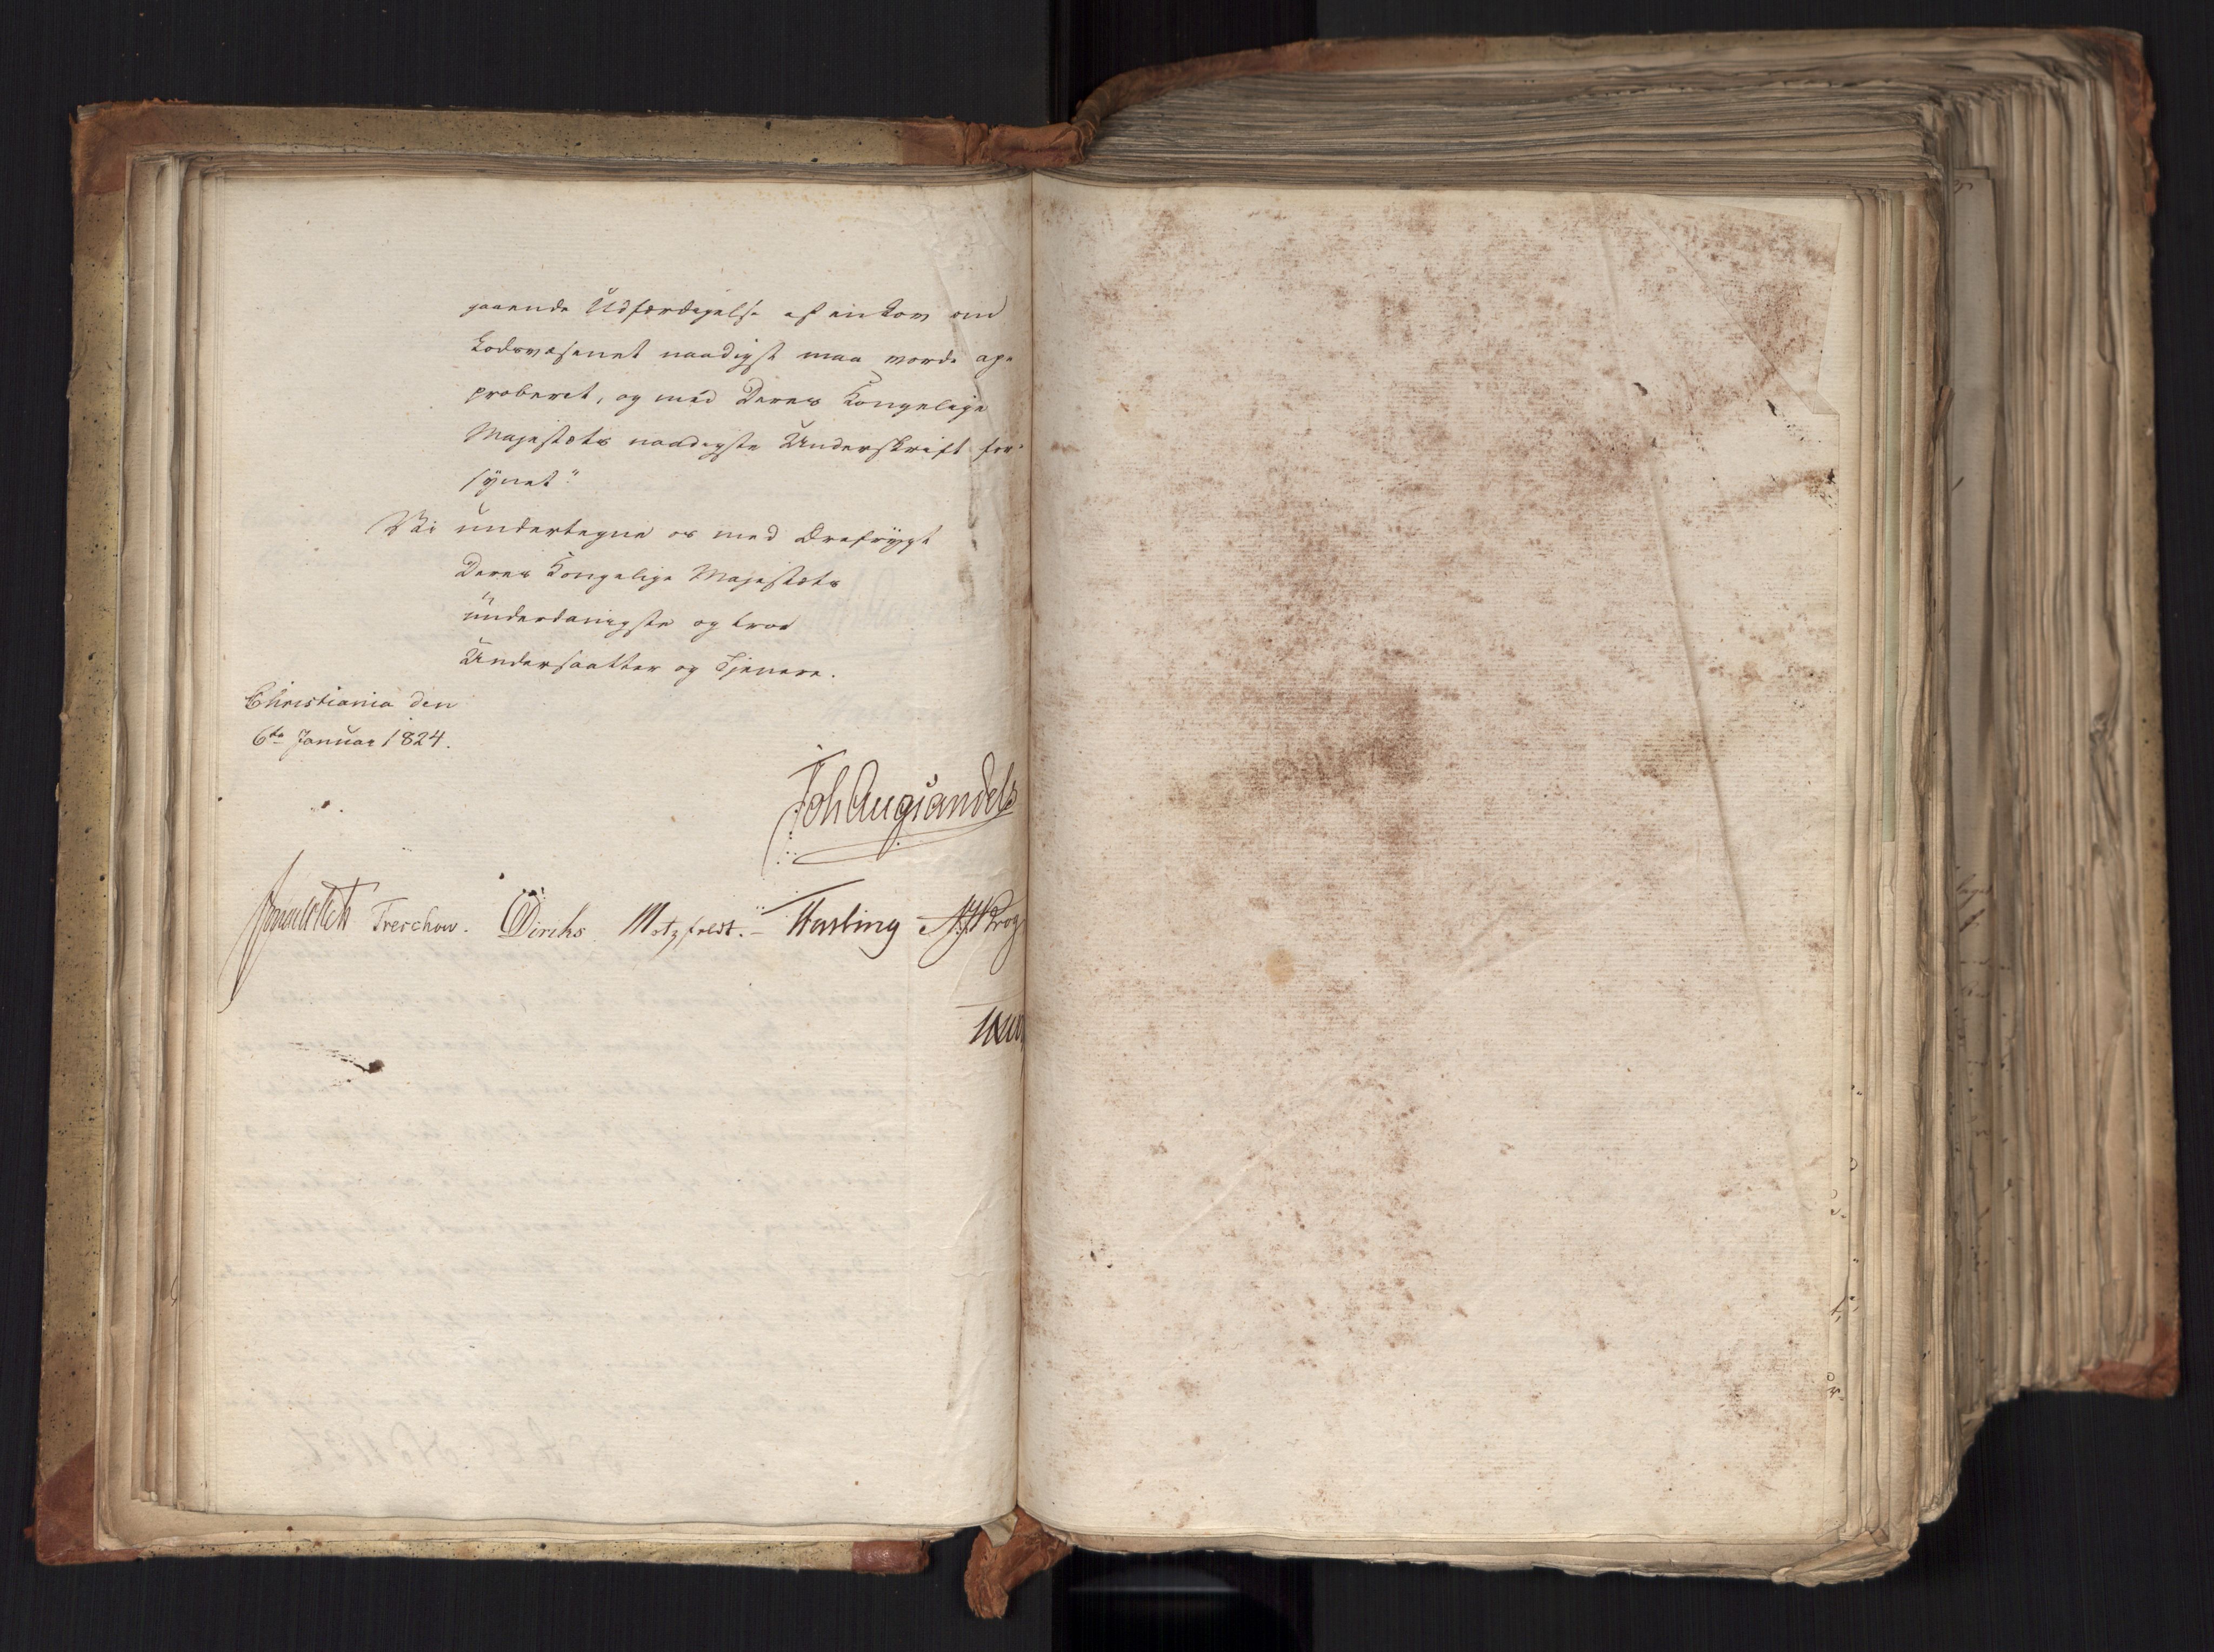 gaaende Udfærdigelse af en Lov om
Lodsvæsenet naadigst maa vorde ap-
proberet, og med Deres Kongelige
Majestæts naadigste Underskrift for-
synet."
Vi undertegne os med Ærefrygt
Deres Kongelige Majestæts
underdanigste og troe
Undersaatter og Tjenere.
Christiania den
6te Januar 1824.
Joh Aug Sandels
Sommerfeldt Treschow. Diriks. Motzfeldt. Fasting